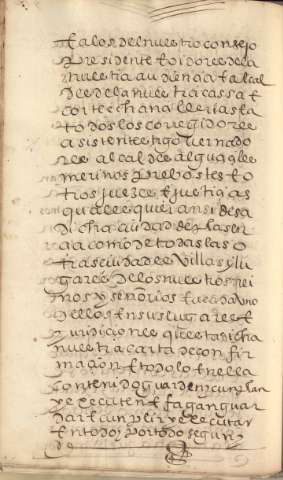 E a los del nuestro consejo
Presidente E oidores de la
nuestra audiencia E alcal
des de la nuestra cassa E
corte E chançilleria E a
todos los corregidores
asistentes gouernado
res alcaldes alguaziles
merinos prebostes E o
tros jueçes E justiçias
quales quier ansi desa
dicha ciudad de
como de todas las o
tras ciudades Villas y lu
gares de los nuestros rei
nos y señorios E a cada uno
dellos En sus lugares E
juridiçiones que esta dicha
nuestra carta de confir
maçion E todo lo En ella
contenido guarden y cunplan
y executen E fagan guar
dar E cunplir y executar
En todo y por todo segun y